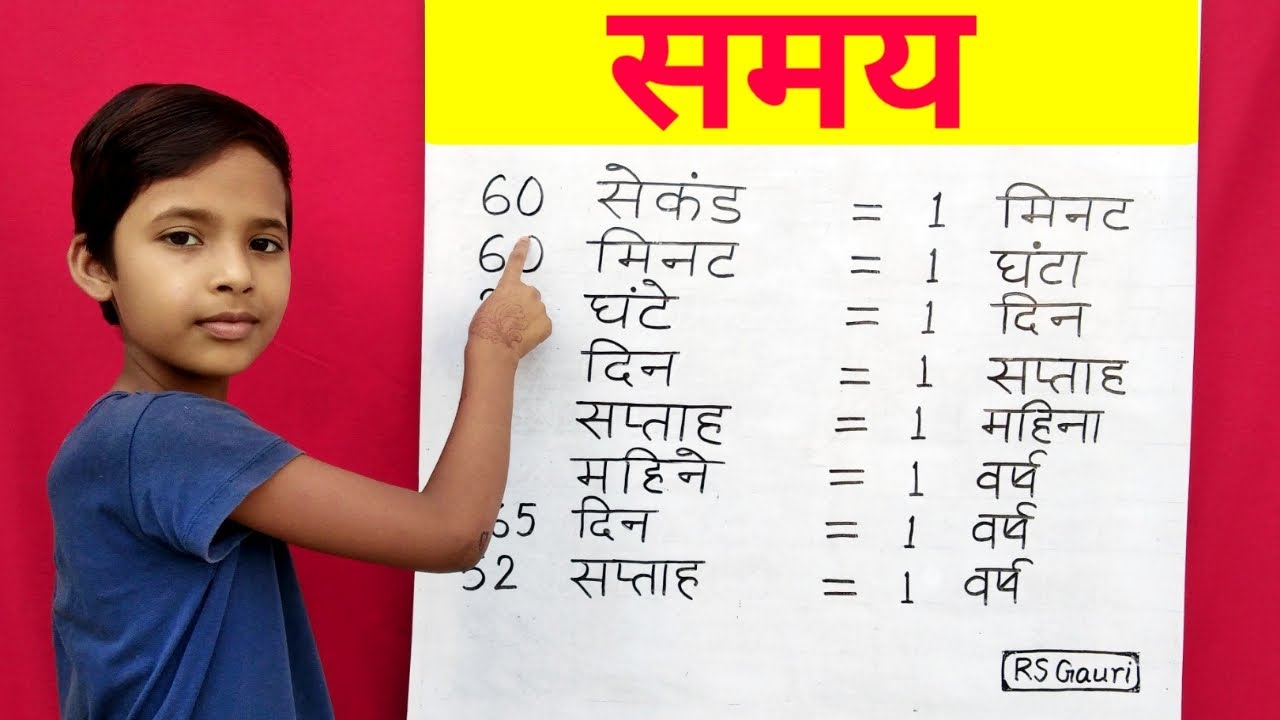 समय
60 सेकंड = 1 मिनट
60 मिनट = 1 घंटा
घंटे = 1 दिन
दिन = 1 सप्ताह
सप्ताह = 1 महिना
महिने = 1 वर्ष
65 दिन = 1 वर्ष
52 सप्ताह = 1 वर्ष
RS Gauri